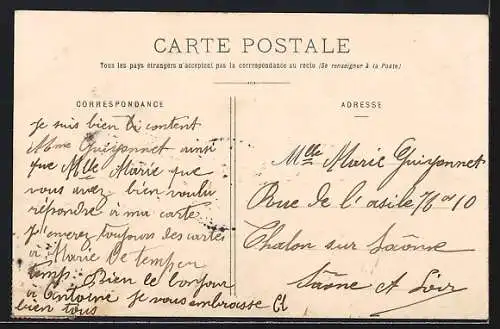 CARTE POSTALE
Tous les pays étrangers n'acceptent pas la correspondance au recto (Se renseigner à la Poste)
CORRESPONDANCE
Je suis bien content
Mme Guiyonnet ainsi
que Mlle Marie que
vous avez bien voulu
répondre a ma carte
j'enverez toujours des cartes
a Marie de temp en
temp. Bien le bonjour
a Antoine je vous embrasse
bien tous
ADRESSE
Mlle Marie Guiyonnet
Rue de l'asile 10
Chalon sur Saône
Saône et Loir